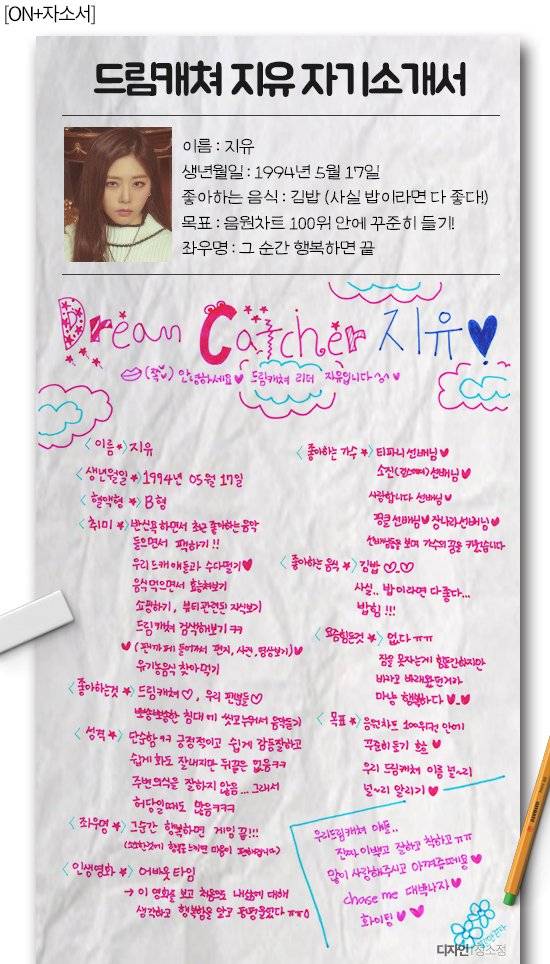 [ON+자소서]
드림캐쳐 지유 자기소개서
이름 : 지유
생년월일 : 1994년 5월 17일
좋아하는 음식 : 김밥 (사실 밥이라면 다 좋다!)
목표 : 음원차트 100위 안에 꾸준히 들기!
좌우명 : 그 순간 행복하면 끝
Dream Catcher 지유
(쪽) 안녕하세요♥ 드림캐쳐 리더 지유입니다 ♥
<이름★> 지유
<생년월일★> 1994년 05월 17일
<혈액형★> B형
<취미★> 반신욕 하면서 최근 좋아하는 음악
들으면서 팩하기!!
우리 드캐 애들과 수다떨기♥
음식 먹으면서
쇼핑하기, 뷰티관련된
드림캐쳐 검색해보기 ㅋㅋ
♥(팬카페 들어가서 편지, 사진, 영상보기)♥
유기농음식 찾아먹기
<좋아하는것★> 드림캐쳐♡, 우리 팬분들♡
뽀송뽀송한 침대에 씻고 누워서 음악듣기
<성격★> 단순함ㅋㅋ 긍정적이고 쉽게 감동잘하고
쉽게 화도 잘내지만 뒤끝은 없음ㅋㅋ
주변의식을 잘하지 않음... 그래서
허당일때도 많음ㅋㅋㅋ
<좌우명★> 그순간 행복하면 게임 끝!!!
<인생영화★> 어바웃 타임
→ 이 영화를 보고 처음으로 내 삶에 대해
생각하고 행복함을 알고 펑펑울었다 ㅠㅠ
<좋아하는 가수★> 티파니 선배님♥
소진(걸스데이)선배님♥
사랑합니다 선배님♥
핑클선배님♥ 장나라선배님♥
선배님들을 보며 가수의 꿈을 키웠습니다
<좋아하는 음식★> 김밥 ♡_♡
사실.. 밥이라면 다 좋다...
밥힘!!!
<요즘힘든것★> 없다 ㅠㅠ
잠을 못자는게 힘들긴하지만
바라고 바래왔던거라
마냥 행복하다 ♥_♥
<목표★> 음원차트 100위권 안에
꾸준히 듣기 ♥
우리 드림캐쳐 이름 널~리
널~리 알리기♥
우리드림캐쳐 아들..
진짜 이쁘고 잘하고 착하고 ㅠㅠ
많이 사랑해주시고 아껴줍쎄용♥
chase me 대박나자♥
화이팅♥♥
디자인 | 정소정